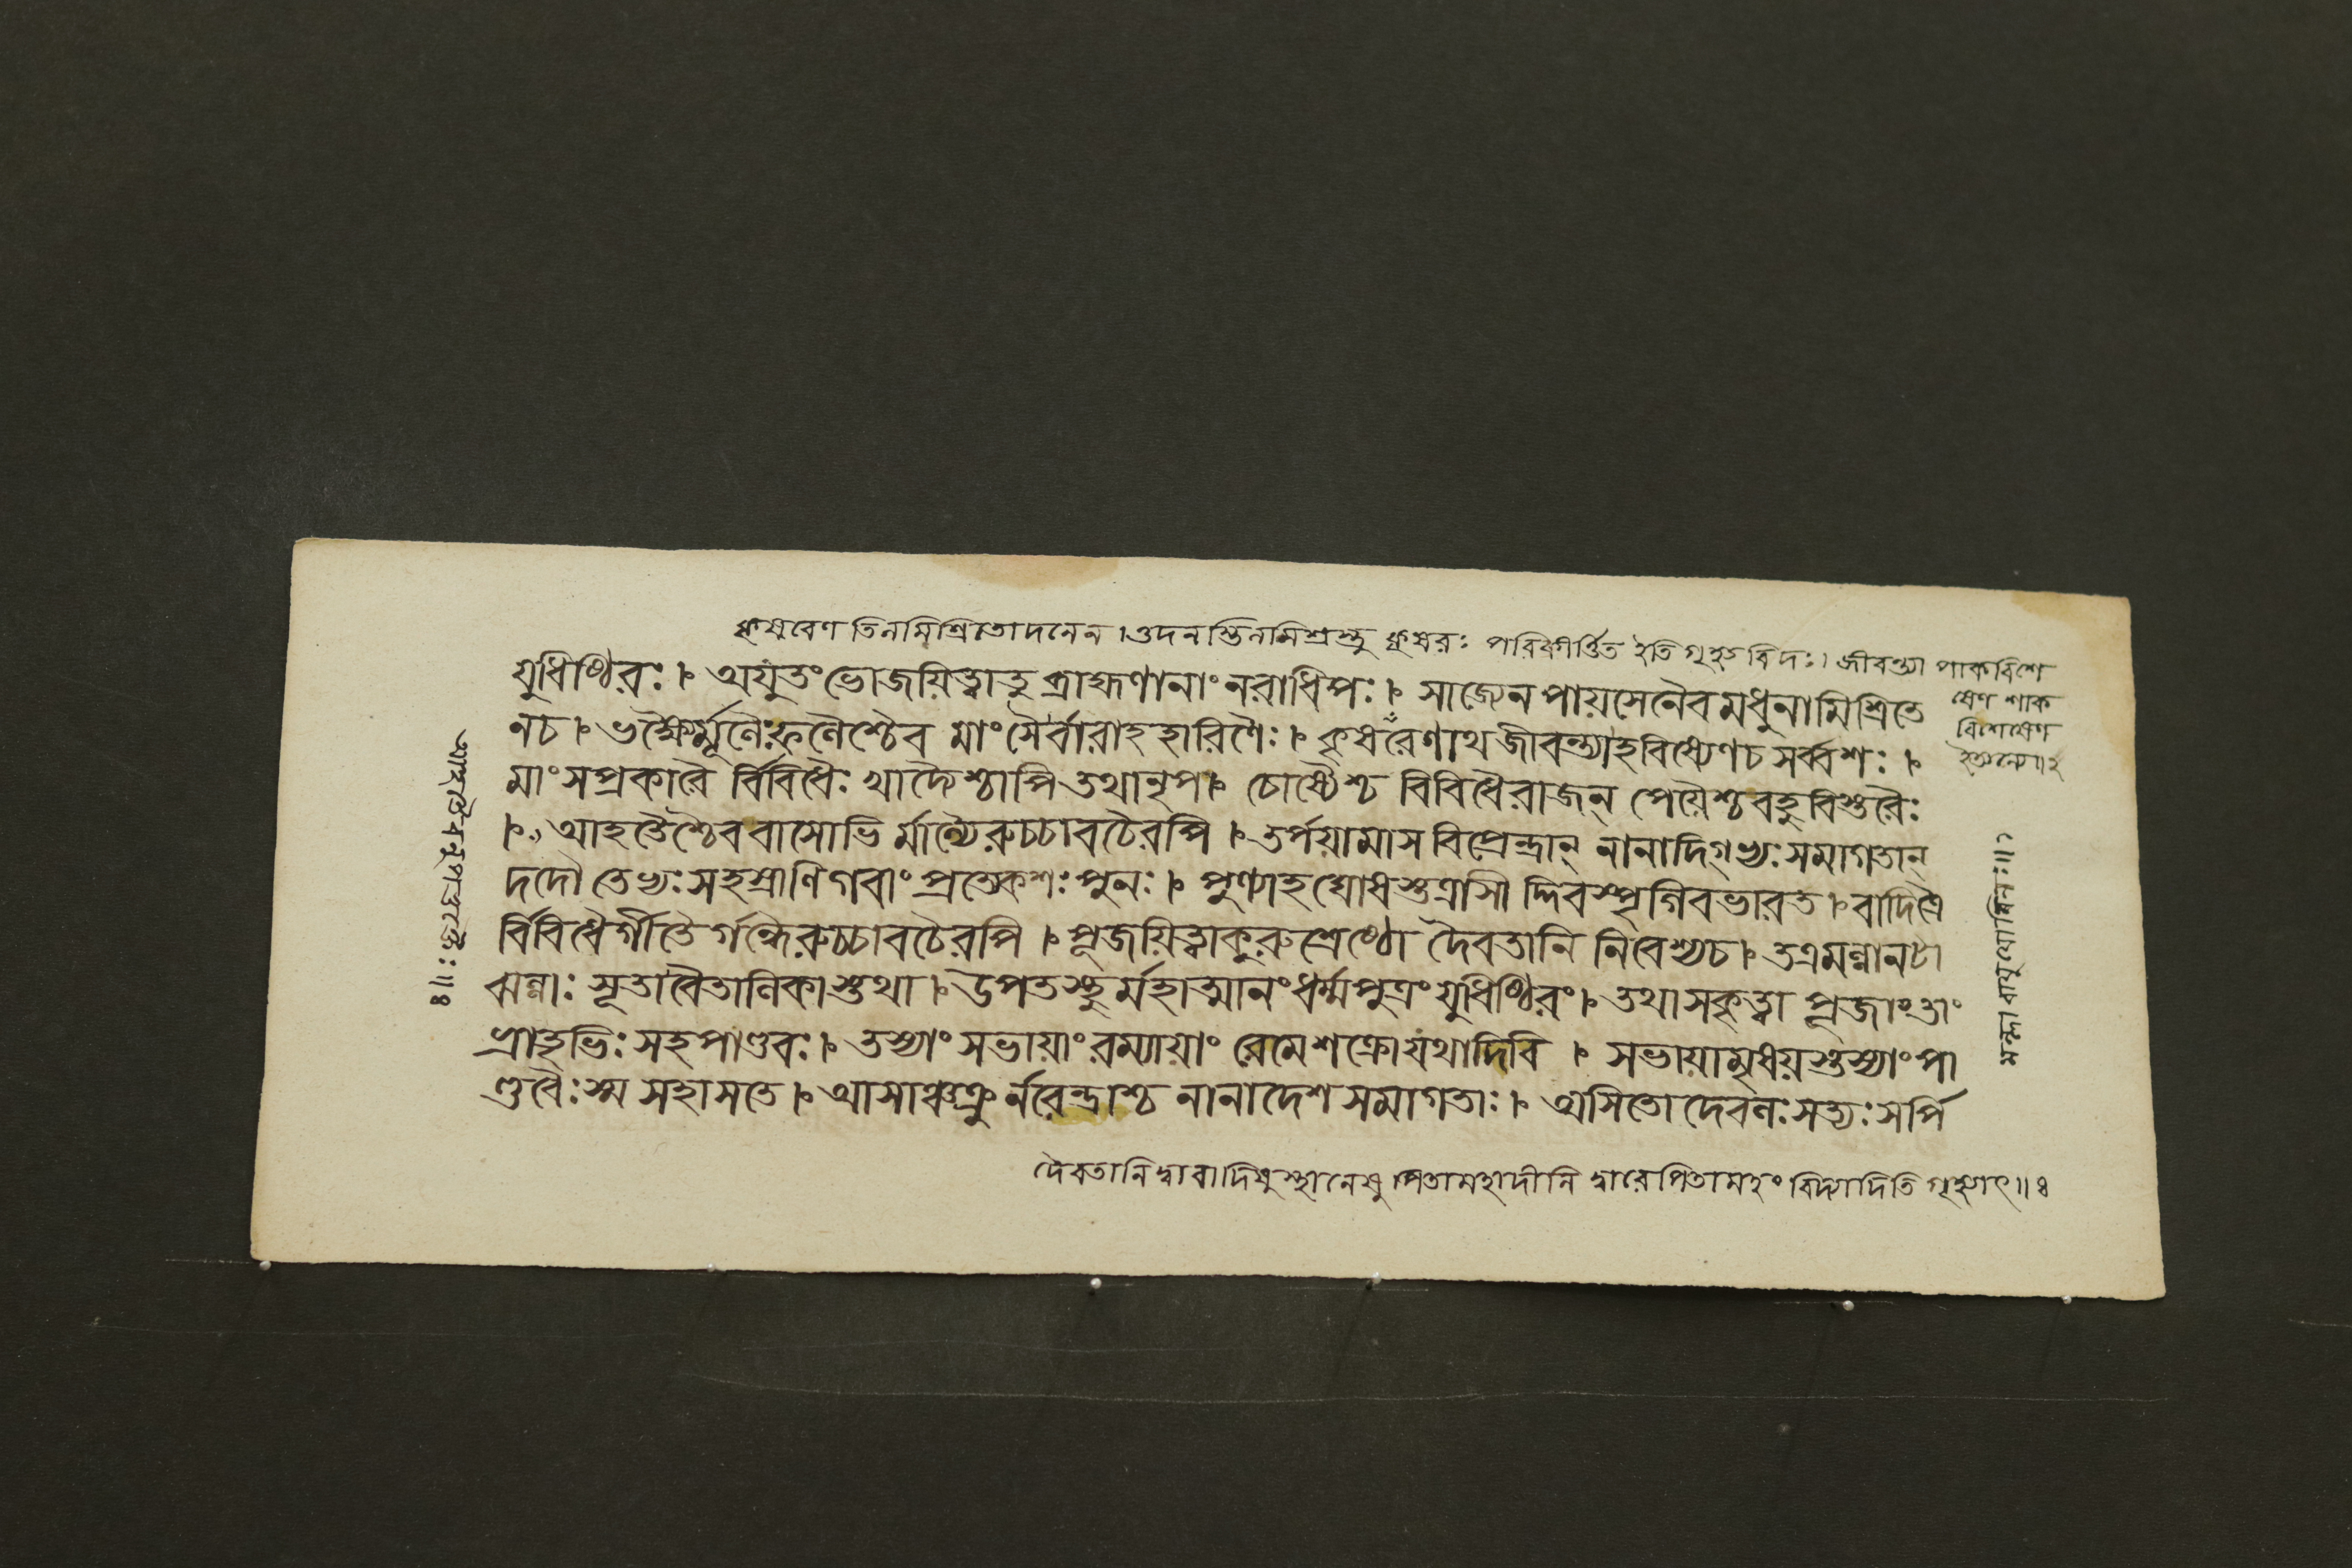 কৃষরেণ তিলমিশ্রিতোদনেন । ওদনস্তিলমিশ্রস্তু কৃষরঃ পরিকীর্ত্তিত ইতি গৃহ্যবিদঃ । জীবন্ত্যা পাকবিশে
ষেণ শাক
বিশেষেণ
ইত্যন্যে॥২
যুধিষ্ঠিরঃ । অযুতং ভোজয়িত্বা তু ব্রাহ্মণানাং নরাধিপঃ । সাজ্যেন পায়সেনৈব মধুনা মিশ্রিতে
ন চ । ভক্ষ্যৈর্মূলৈঃ ফলৈশ্চৈব মাংসৈর্বারাহহারিণৈঃ । কৃষরেণাথ জীবন্ত্যা হবিষ্যেণ চ সর্ব্বশঃ ।
মাংসপ্রকারৈ র্বিবিধৈঃ খাদ্যৈশ্চাপি তথা নৃপ । চোষ্যৈশ্চ বিবিধৈ রাজন্ পেয়ৈশ্চ বহুবিস্তরৈঃ
। আহতৈশ্চৈব বাসোভি র্মাল্যৈরুচ্চাবচৈরপি । তর্পয়ামাস বিপ্রেন্দ্রান্ নানাদিগ্ভ্যঃ সমাগতান্
দদৌ তেভ্যঃ সহস্রাণি গবাং প্রত্যেকশঃ পুনঃ । পুণ্যাহঘোষস্তত্রাসী দ্দিবস্পৃগিব ভারত । বাদিত্রৈ
র্বিবিধৈর্গীতৈ র্গন্ধৈরুচ্চাবচৈরপি । পূজয়িত্বা কুরুশ্রেষ্ঠো দৈবতানি নিবেশ্য চ । তত্র মল্লা নটা
ঝল্লাঃ সূতা বৈতালিকাস্তথা । উপতস্থুর্মহাত্মানং ধর্ম্মপুত্রং যুধিষ্ঠিরং । তথা স কৃত্বা পূজাং তাং
ভ্রাতৃভিঃ সহ পাণ্ডবঃ । তস্যাং সভায়াং রম্যায়াং রেমে শক্রো যথা দিবি । সভায়ামৃষয়স্তস্যাং পা
ণ্ডবৈঃ স্ম সহাসতে । আসাঞ্চক্রু র্নরেন্দ্রাশ্চ নানাদেশসমাগতাঃ । অসিতো দেবলঃ সত্যঃ সর্পি
দৈবতানি দ্বারাদিষু স্থানেষু পিতামহাদীনি দ্বারে পিতামহং বিদ্যাদিতি গৃহ্যাৎ॥৪
মল্লা বাহুযোধিনঃ॥১